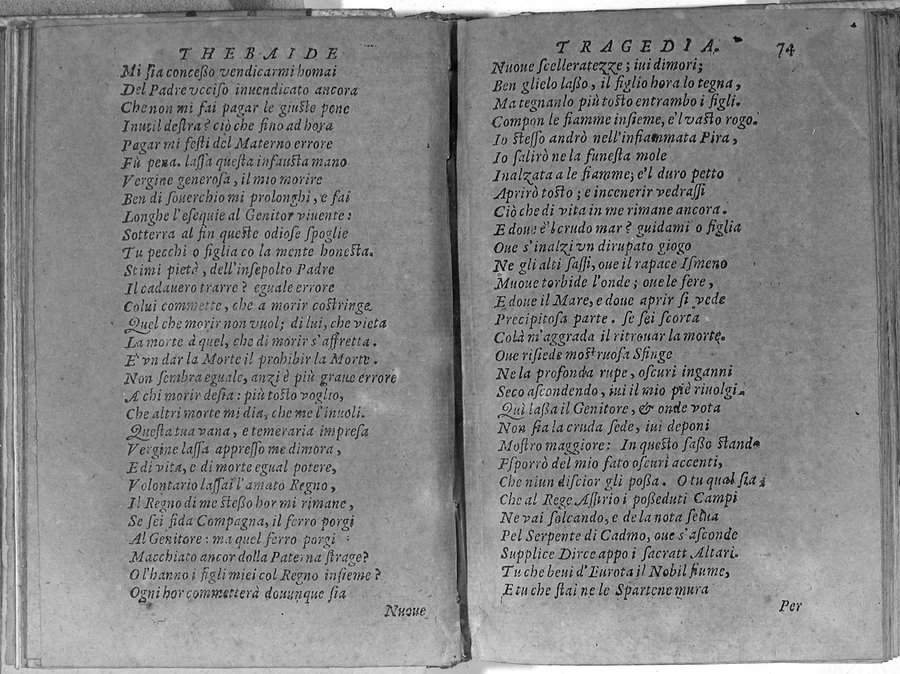 THEBAIDE
Mi ſia conceßo vendicarmi homai
Del Padre vcciſo inuendicato ancora
Che non mi fai pagar le giuſte pene
Inutil deſtra? ciò che fino ad hora
Pagar mi feſti del Materno errore
Fù pena. laſſa queſta infauſta mano
Vergine generoſa, il mio morire
Ben di ſouerchio mi prolonghi, e fai
Longhe l'eſequie al Genitor viuente:
Sotterra al fin queſte odioſe ſpoglie
Tu pecchi o figlia co la mente honeſta.
Stimi pietà, dell'inſepolto Padre
Il cadauero trarre? eguale errore
Colui commette, che a morir coſtringe
Quel che morir non vuol; di lui, che vieta
La morte à quel, che di morir s'affretta.
E' vn dar la Morte il prohibir la Morte.
Non ſembra eguale, anzi è più graue errore
A chi morir deſia: più toſto voglio,
Che altri morte mi dia, che me l'inuoli.
Queſta tua vana, e temeraria impreſa
Vergine laſſa appreſſo me dimora,
E di vita, e di morte egual potere,
Volontario laſſai l'amato Regno,
Il Regno di me ſteßo hor mi rimane,
Se ſei fida Compagna, il ferro porgi
Al Genitore: ma quel ferro porgi
Macchiato ancor dolla Paterna ſtrage?
O l'hanno i figli miei col Regno inſieme?
Ogni hor commetterà douunque ſia
Nuoue
TRAGEDIA. 74
Nuoue ſcelleratezze; iui dimori;
Ben glielo laßo, il figlio hora lo tegna,
Ma tegnanlo più toſto entrambo i figli.
Compon le fiamme inſieme, e'l vaſto rogo.
Io ſteſſo andrò nell'infiammata Pira,
Io ſalirò ne la funeſta mole
Inalzata a le fiamme; e'l duro petto
Aprirò toſto; e incenerir vedraſſi
Ciò che di vita in me rimane ancora.
E doue è'l crudo mar? guidami o figlia
Oue s'inalzi vn dirupato giogo
Ne gli alti ſaſſi, oue il rapace Iſmeno
Muoue torbide l'onde; oue le fere,
E doue il Mare, e doue aprir ſi vede
Precipitoſa parte. ſe ſei ſcorta
Colà m'aggrada il ritrouar la morte.
Oue riſiede moſtruoſa Sfinge
Ne la profonda rupe, oſcuri inganni
Seco aſcondendo, iui il mio piè riuolgi.
Quì laßa il Genitore, & onde vota
Non ſia la cruda ſede, iui deponi
Moſtro maggiore: In queſto ſaßo ſtando
Eſporrò del mio fato oſcuri accenti,
Che niun diſcior gli poſſa. O tu qual ſia
Che al Rege Aſſirio i poßeduti Campi
Ne vai ſolcando, e de la nota ſelua
Pel Serpente di Cadmo, oue s'aſconde
Supplice Dirce appo i ſacrati Altari.
Tu che beui d'Eurota il Nobil fiume,
E tu che ſtai ne le Spartene mura
Per